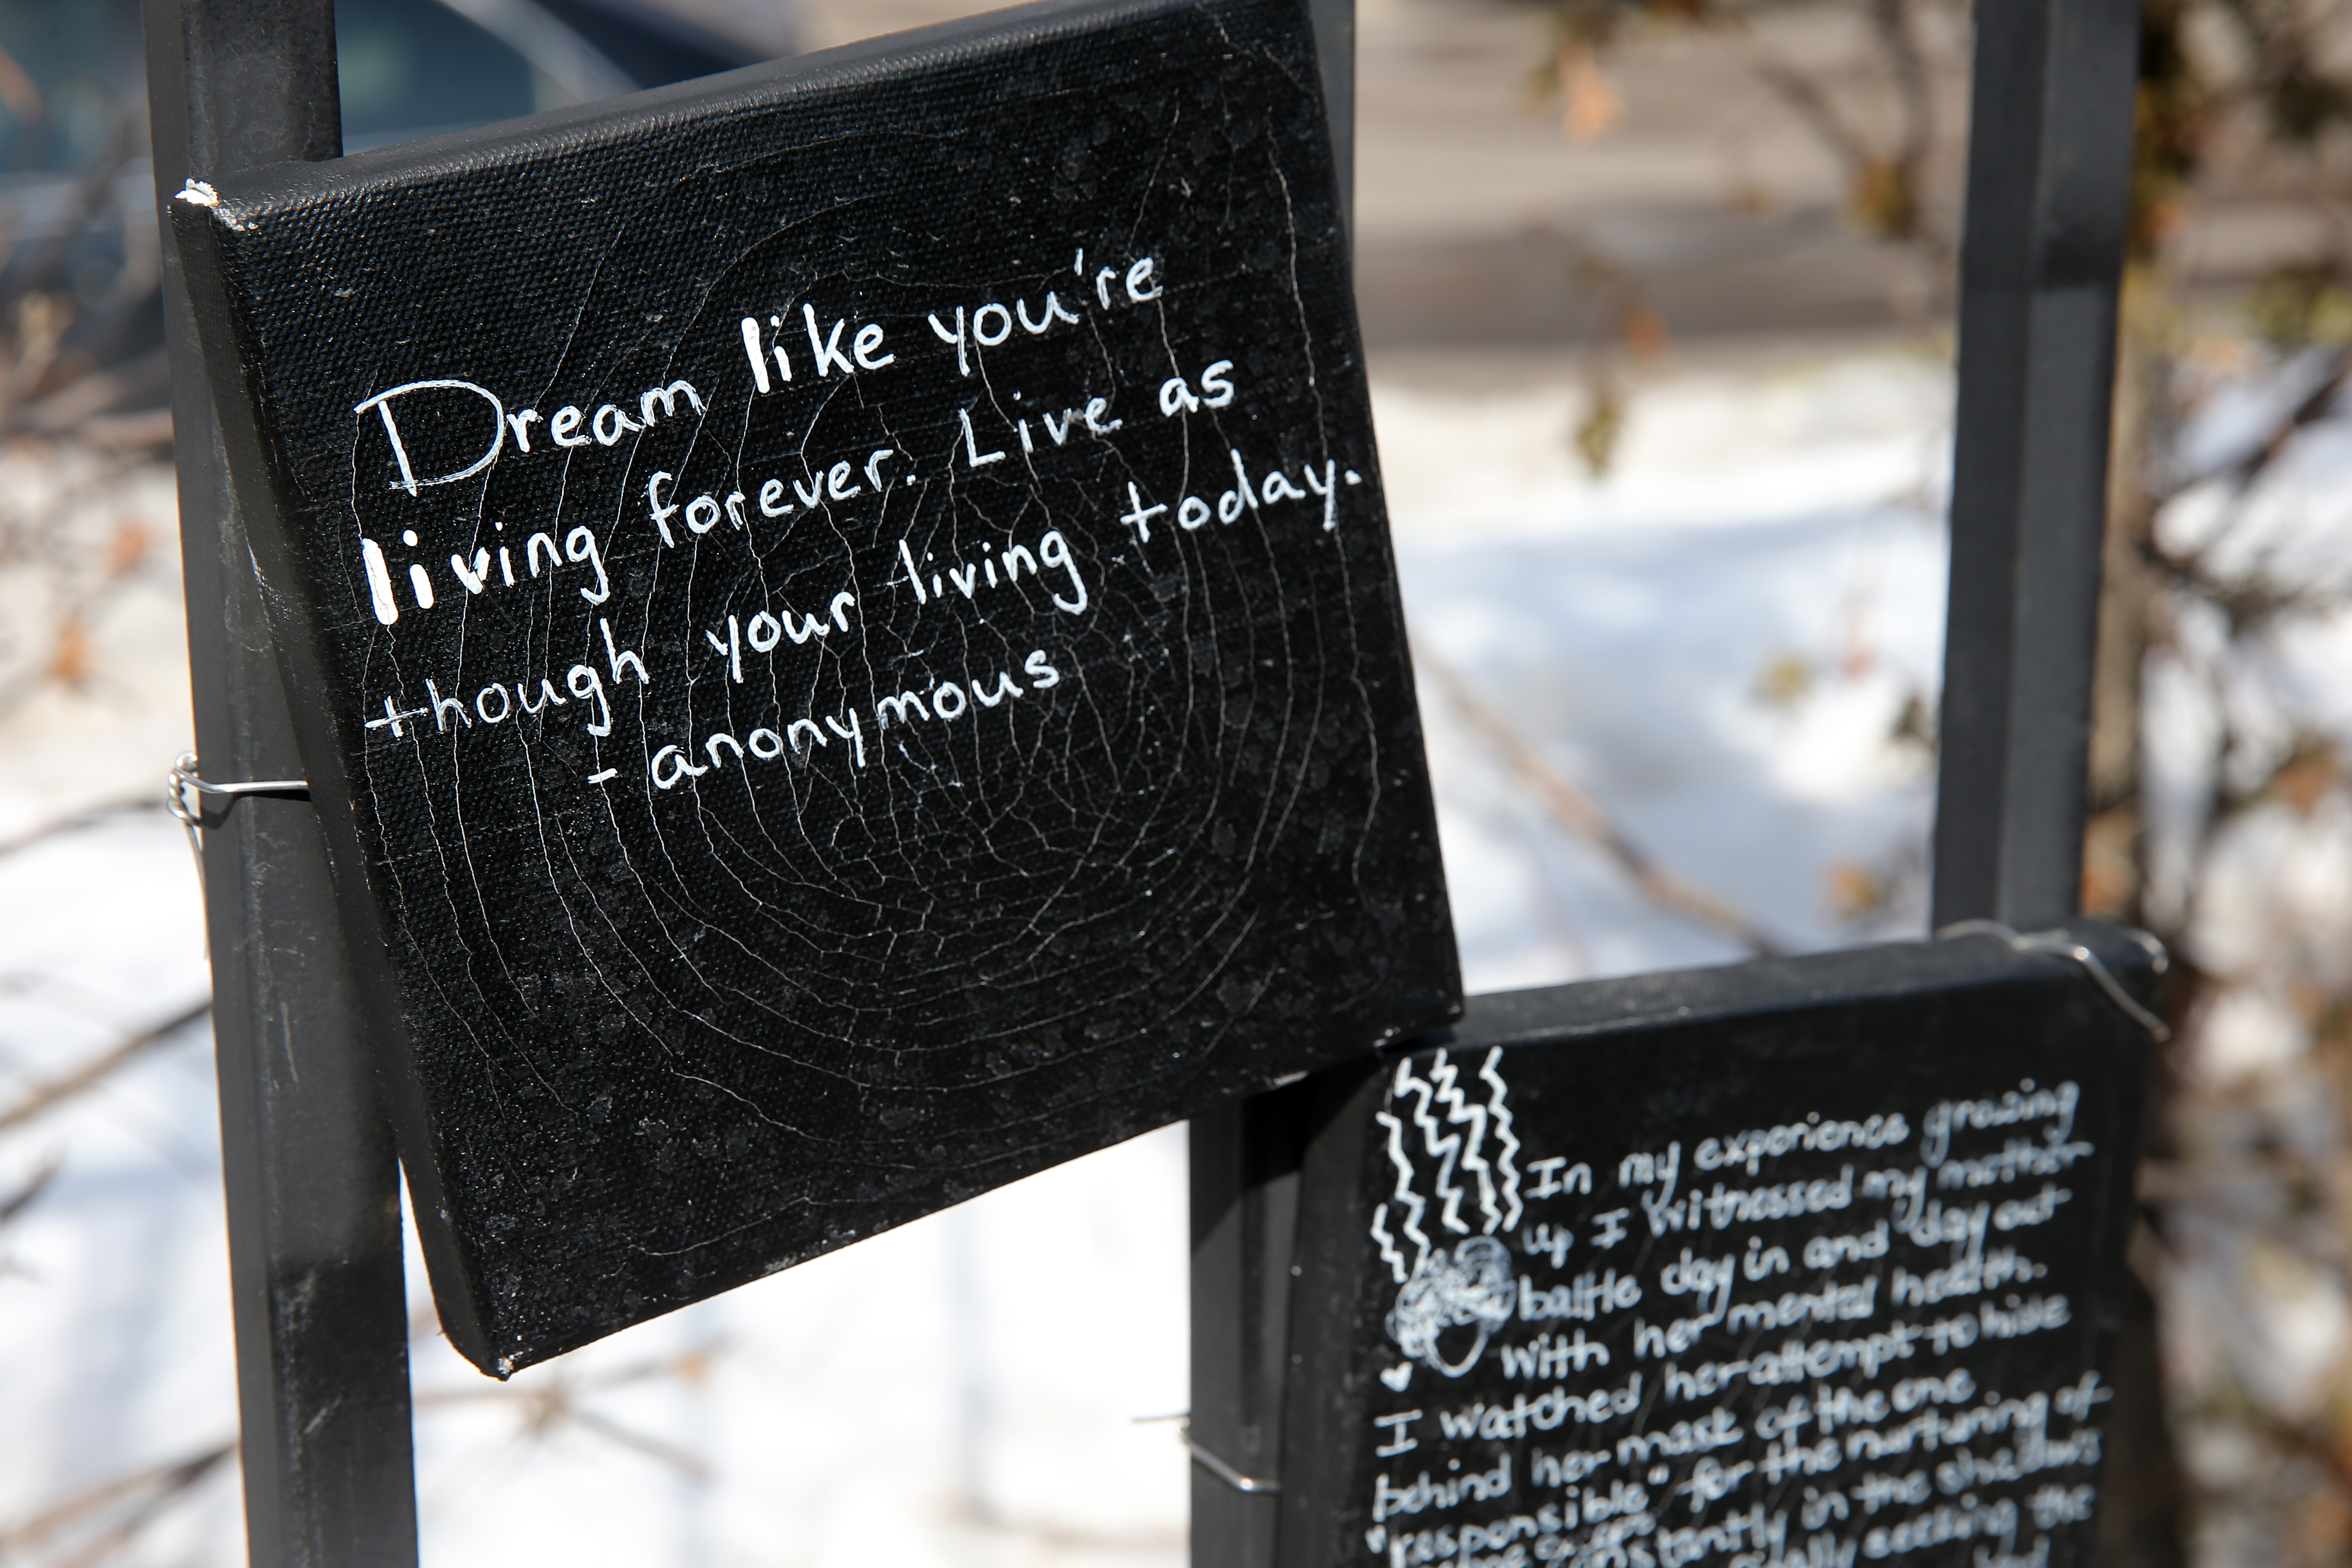 Dream like you're
living forever. Live as
though your living today.
- anonymous
In my experience growing
up I witnessed my mother
battle day in and day out
with her mental health.
I watched her attempt to hide
behind her mask of the one
"responsible" for the nurturing of
constantly in the shadows
seeking the